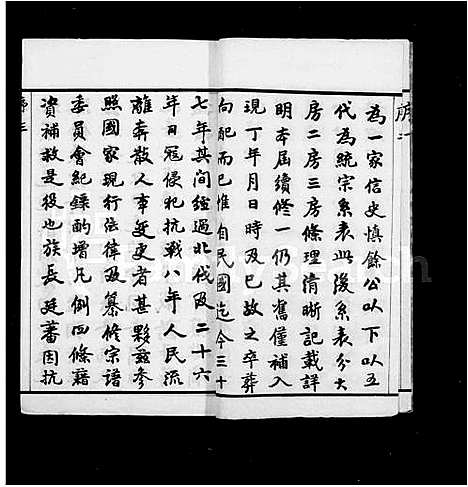 為一家信史慎餘公以下以五
代為統宗系表此後系表分大
房二房三房條理清晰記載詳
明本屆續修一仍其舊僅補入
現丁年月日時及已故之卒葬
向配而已惟自民國迄今三十
七年其間經過北伐及二十六
年日寇侵犯抗戰八年人民流
離奔散人事迁更者甚夥茲參
照國家現行法律及纂修宗譜
委員會紀錄酌增凡例四條藉
資補救是役也族長廷蕃因抗
序三